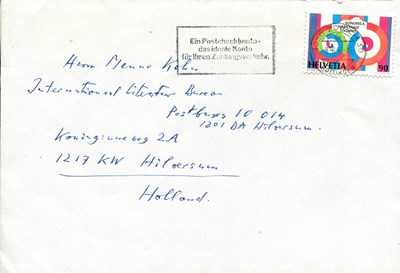 Ein Postcheckkonto-
das ideale Konto
für Ihren Zahlungsverkehr.
HELVETIA 90
Herrn Menno Kohn
International Literatuur Bureau
Postbus 10 014
1201 DA Hilversum.
Koninginneweg 2A
1217 KW Hilversum
Holland.